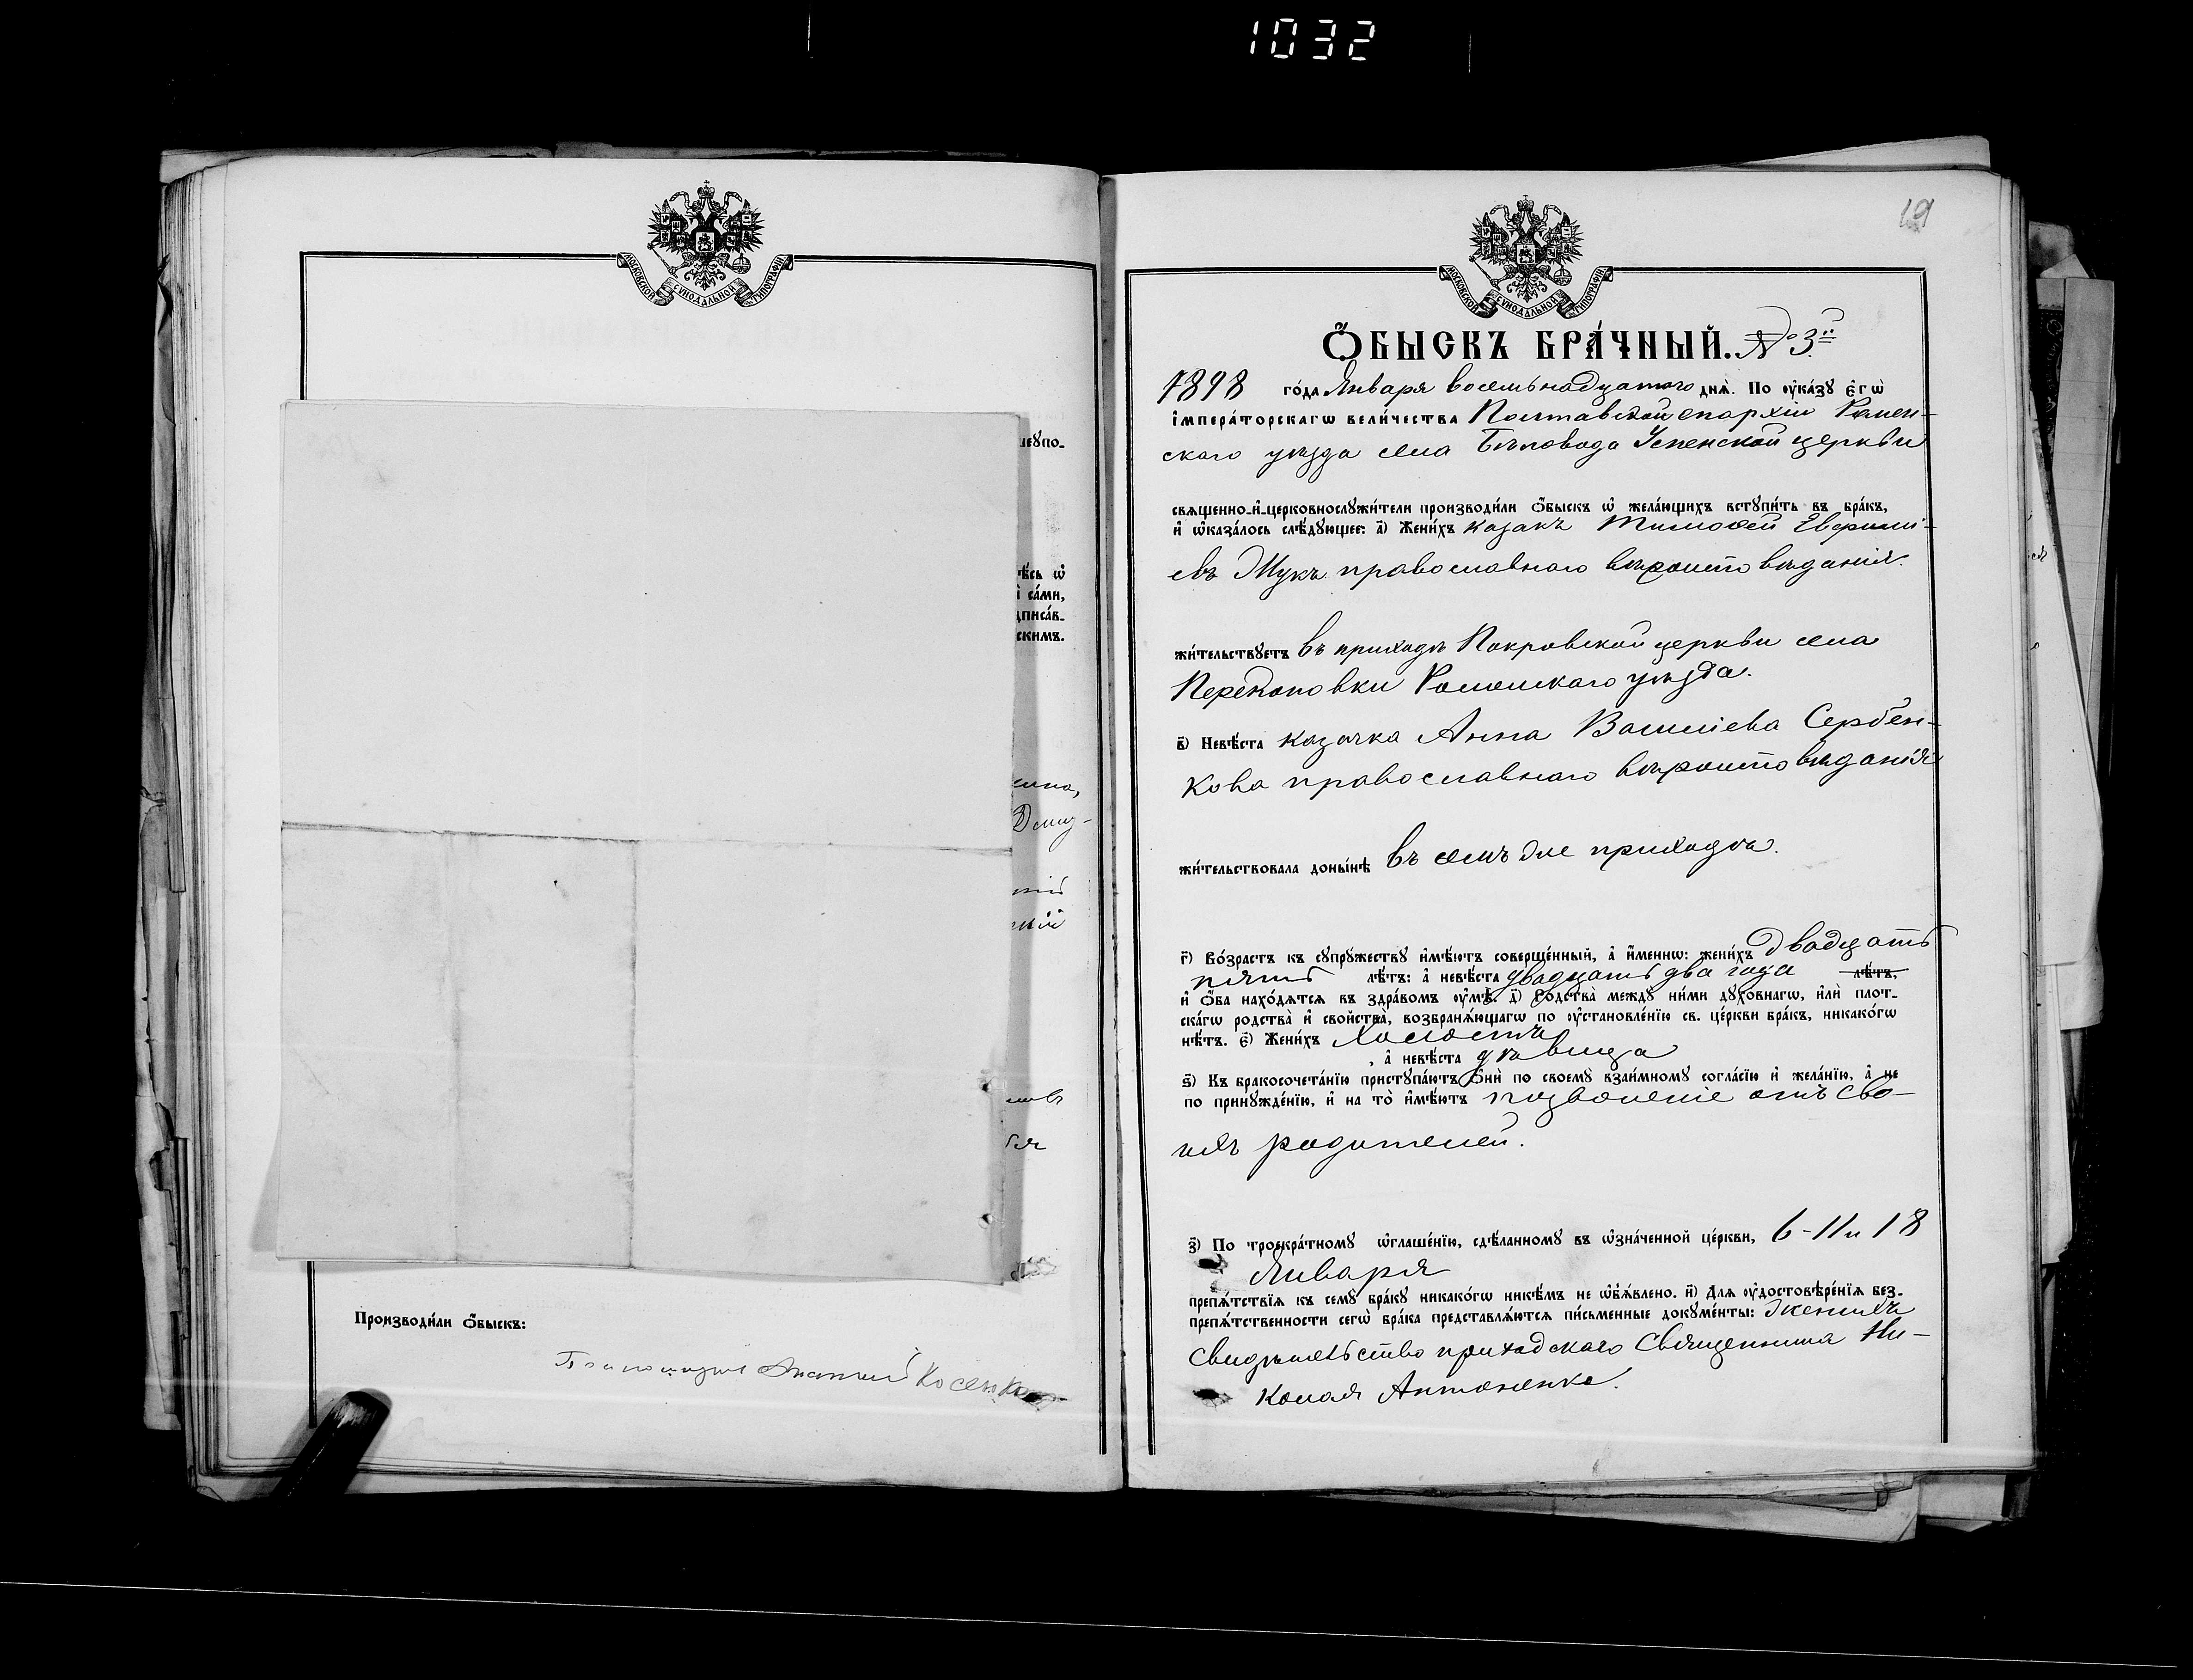 1032
МОСКОВСКОЙ СѴНОДАЛЬНОЙ ТИПОГРАФІИ
шеупо-
сами,
дписав-
скимъ.
Производи́ли ѻ҆́быскъ:
Косенко
19
МОСКОВСКОЙ СѴНОДАЛЬНОЙ ТИПОГРАФІИ
Ѻ҆́БЫСКЪ БРА́ЧНЫЙ. № 3й
1898 го́да Января восемьнадцатого дня̀. По оу҆ка́зꙋ є҆гѡ̀
і҆мпера́торскагѡ вели́чества Полтавской епархіи Ромен-
ского уѣзда села Бѣловода Успенской церкви
свѧщенно-и҆-церковнослꙋжи́тели производи́ли ѻ҆́быскъ ѡ҆ жела́ющихъ встꙋпи́ть въ бра́къ,
и҆ ѡ҆каза́лось слѣ́дꙋющее: а҃) Жени́хъ казакъ Тимоѳей
евъ Жукъ православнаго вѣроисповѣданія.
жи́тельствꙋетъ въ приходѣ Покровской церкви села
Перекоповки Роменского уѣзда.
в҃) Невѣ́ста казачка Анна Василіева Сербен-
кова православнаго вѣроисповѣданія
жи́тельствовала доны́нѣ въ семъ же приходѣ.
г҃) Во́зрастъ къ сꙋпрꙋ́жествꙋ и҆мѣ́ютъ соверше́нный, а҆ и҆́меннѡ: жени́хъ двадцать
пять лѣ́тъ: а҆ невѣ́ста двадцать два года лѣ́тъ,
и҆ ѻ҆́ба нахо́дѧтсѧ въ здра́вомъ оу҆мѣ̀. д҃) Родства̀ междꙋ ни́ми дꙋхо́внагѡ, и҆лѝ плот-
ска́гѡ родства̀ и҆ сво́йства̀, возбранѧ́ющагѡ по оу҆становле́нїю св. це́ркви бра́къ, никако́гѡ
нѣ́тъ. є҃) Жени́хъ холостъ
, а҆ невѣ́ста дѣвица
ѕ҃) Къ бракосочета́нїю пристꙋпа́ютъ ѻ҆нѝ по своемꙋ̀ взаи́мномꙋ согла́сїю и҆ жела́нїю, а҆ не
по принꙋжде́нїю, и҆ на то̀ и҆мѣ́ютъ позволеніе отъ сво-
ихъ родителей.
з҃) По троекра́тномꙋ ѡ҆глаше́нїю, сдѣ́ланномꙋ въ ѡ҆зна́ченной це́ркви, 6-11 и 18
Января
препѧ́тствїѧ къ семꙋ̀ бра́кꙋ никако́гѡ никѣ́мъ не ѡ҆б̾ѧ́влено. и҃) Для оу҆достовѣре́нїѧ без-
препѧ́тственности сегѡ̀ бра́ка представлѧ́ютсѧ пи́сьменные докꙋме́нты: женихъ
свидѣтельство приходскаго Священника Ни-
колая Антоненко.